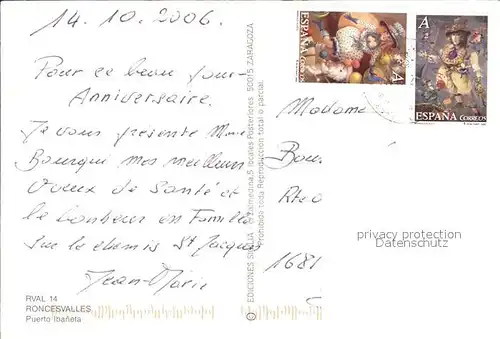 14. 10. 2006.
Pour ce beau jour
Anniversaire.
Je vous présente Mme
Bourqui mes meilleurs
voeux de Santé et
le bonheur en Famille
sur le chemin St Jacques
Jean-Marie
RVAL 14
RONCESVALLES
Puerto Ibañeta
© EDICIONES SICILIA
Posteriores 50015 ZARAGOZA
Prohibida toda Reproducción total o parcial.
ESPAÑA
A
A
ESPAÑA CORREOS
Madame
Bou
Rte
1681
privacy protection
Datenschutz